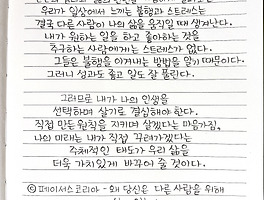 우리가 일상에서 느끼는 불행과 스트레스는
결국 다른 사람이 나의 삶을 움직일 때 생겨난다.
내가 원하는 일을 하고 좋아하는 것을
추구하는 사람에게는 스트레스가 없다.
그들은 불행을 이겨내는 방법을 알기 때문이다.
그러니 성과도 좋고 일도 잘 풀린다.
그러므로 내가 나의 인생을
선택하며 살기로 결심해야 한다.
직접 만든 원칙을 지키며 살겠다는 마음가짐,
나의 미래는 내가 직접 꾸려가겠다는
주체적인 태도가 우리 삶을
더욱 가치있게 바꾸어 줄 것이다.
ⓒ페이서스코리아 - 왜 당신은 다른 사람을 위해